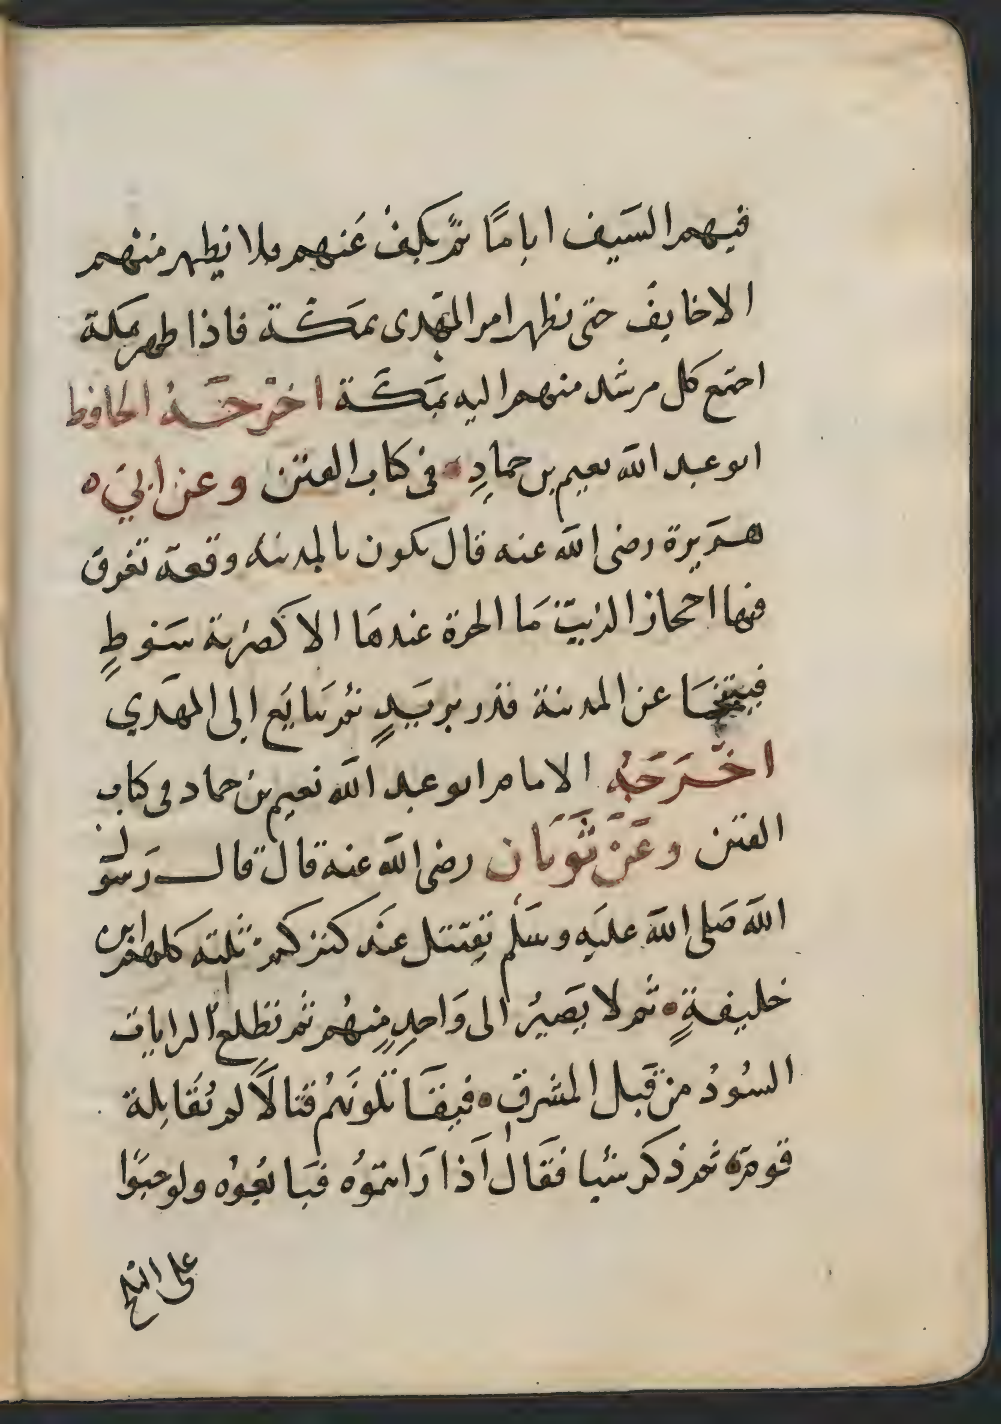 فيهم السيف اياما ثم يكف عنهم فلا يظهر منهم
الا خايف حتى يظهر امر المهدى بمكة فاذا ظهر بمكة
اجتمع كل من شد منهم اليه بمكة اخرجه الحافظ
ابو عبد الله نعيم بن حماد فى كتاب الفتن وعن ابي
هريرة رضى الله عنه قال يكون بالمدينة وقعة تغرق
فيها احجار الزيت ما الحرة عندها الا كضربة سوط
فينتحا عن المدينة قدر بريد ثم يبايع الى المهدي
اخرجه الامام ابو عبد الله نعيم بن حماد فى كتاب
الفتن وعن ثوبان رضى الله عنه قال قال رسول
الله صلى الله عليه وسلم يقتتل عند كنزكم ثلثة كلهم ابن
خليفة ثم لا يصير الى واحد منهم ثم تطلع الرايات
السود من قبل المشرق فيقاتلونهم قتالا لم يقاتله
قوم ثم ذكر شيا فقال اذا رايتموه فبايعوه ولو حبوا
على الثلج